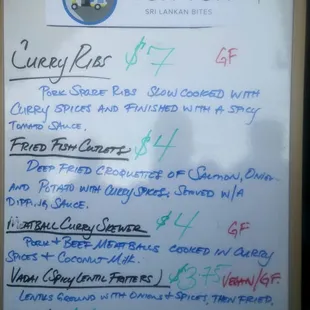 SRI LANKAN BITES
CURRY RIBS $7 GF
PORK SPARE RIBS SLOW COOKED WITH
CURRY SPICES AND FINISHED WITH A SPICY
TOMATO SAUCE.
FRIED FISH CUTLETS $4
DEEP FRIED CROQUETES OF SALMON, ONION
AND POTATO WITH CURRY SPICES, SERVED W/A
DIPPING SAUCE.
MEATBALL CURRY SKEWER $4 GF
PORK & BEEF MEATBALLS COOKED IN CURRY
SPICES & COCONUT MILK.
VADAI (SPICY LENTIL FRITTERS) $3.75 VEGAN/GF.
LENTILS GROUND WITH ONIONS & SPICES, THEN FRIED,